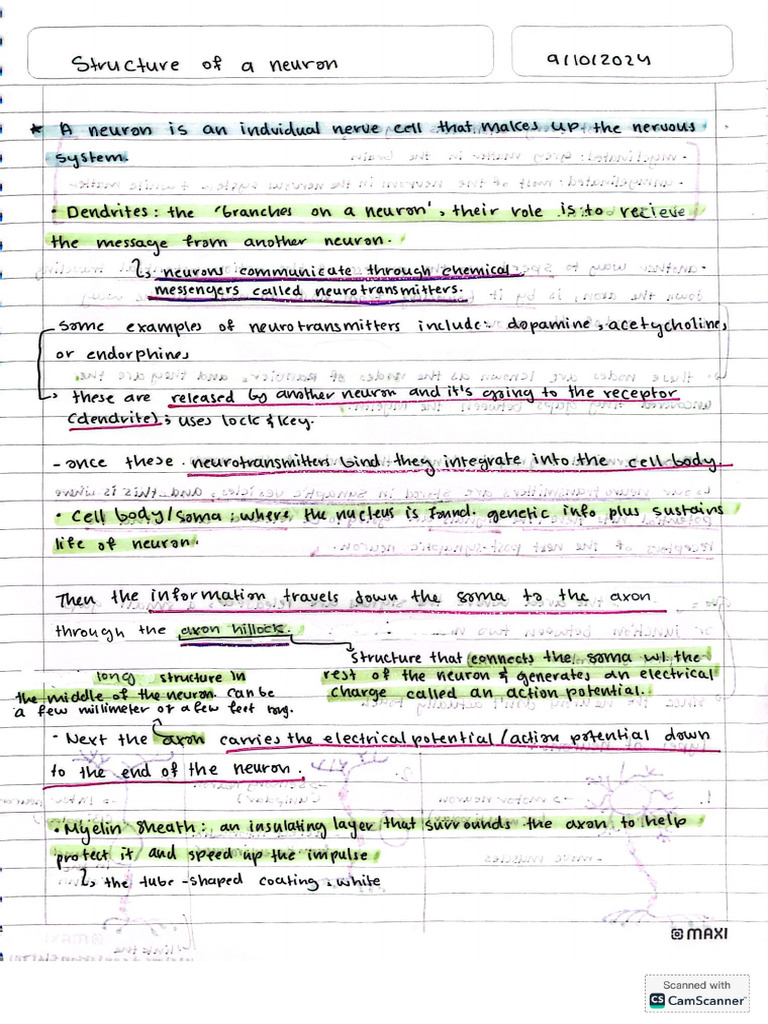 Structure of a neuron
9/10/2024
* A neuron is an indvidual nerve cell that makes up the nervous
system.
• Dendrites : the 'branches on a neuron', their role is to recieve
the message from another neuron.
↳ neurons communicate through chemical
messengers called neurotransmitters.
Some examples of neurotransmitters include: dopamine, acetycholine,
or endorphines
→ these are released by another neuron and it's going to the receptor
(dendrite) ; uses lock & key.
- once these neurotransmitters bind they integrate into the cell body.
• Cell body/soma : where the nucleus is found. genetic info plus sustains
life of neuron.
Then the information travels down the soma to the axon
through the axon hillock.
structure that connects the soma w/ the
rest of the neuron & generates an electrical
charge called an action potential.
long structure in
the middle of the neuron. can be
a few millimeter or a few feet long.
• Next the axon carries the electrical potential / action potential down
to the end of the neuron.
• Myelin Sheath : an insulating layer that surrounds the axon to help
protect it and speed up the impulse
↳ the tube-shaped coating, white
MAXI
Scanned with
CS CamScanner